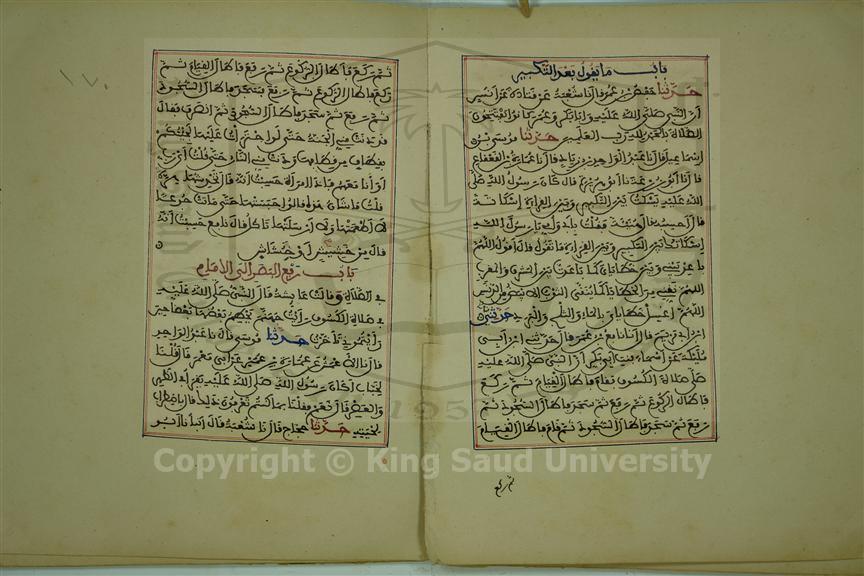 باب ما يقول بعد التكبير
حدثنا حفص بن عمر قال نا شعبة عن قتادة عن انس
ان النبي صلى الله عليه وابا بكر وعمر كانوا يفتتحون
الصلاة بالحمد لله رب العلمين حدثنا موسى بن
اسماعيل قال نا عبد الواحد بن زياد قال نا عمارة بن القعقاع
قال نا ابو زرعة نا ابو هريرة قال كان رسول الله صلى
الله عليه يسكت بين التكبير وبين القراءة اسكاتة
قال احسبه قال هنية فقلت بابي وامي يا رسول الله
اسكاتك بين التكبير وبين القراءة ما تقول قال اقول اللهم
باعد بيني وبين خطاياي كما باعدت بين المشرق والمغرب
اللهم نقني من الخطايا كما ينقى الثوب الابيض من الدنس
اللهم اغسل خطاياي بالماء والثلج والبرد حدثنا
ابن ابي مريم قال انا نافع بن عمر قال حدثني ابن ابي
مليكة عن اسماء بنت ابي بكر ان النبي صلى الله عليه
صلى صلاة الكسوف فقام فاطال القيام ثم ركع
فاطال الركوع ثم رفع ثم سجد فاطال السجود ثم
رفع ثم سجد فاطال السجود ثم قام فاطال القيام
ثم ركع
ثم ركع فاطال الركوع ثم رفع فاطال القيام ثم
ركع فاطال الركوع ثم رفع فسجد فاطال السجود
ثم رفع ثم سجد فاطال السجود ثم انصرف فقال
قد دنت مني الجنة حتى لو اجترات عليها لجئتكم
بقطاف من قطافها ودنت مني النار حتى قلت اي رب
او انا معهم فاذا امراة حسبت انه قال تخدشها هرة
قلت ما شان هذه قالوا حبستها حتى ماتت جوعا
لا اطعمتها ولا ارسلتها تاكل قال نافع حسبت انه
قال من خشيش او خشاش
باب رفع البصر الى الامام
في الصلاة وقالت عايشة قال النبي صلى الله عليه
في صلاة الكسوف رايت جهنم يحطم بعضها بعضا حين
رايتموني تاخرت حدثنا موسى قال نا عبد الواحد
قال نا الاعمش عن عمارة بن عمير عن ابي معمر قال قلنا
لخباب اكان رسول الله صلى الله عليه يقرا في الظهر
والعصر قال نعم فقلنا بما كنتم تعرفون ذلك قال باضطراب
لحيته حدثنا حجاج قال نا شعبة قال انبانا ابو
١٧٠
Copyright © King Saud University
1957